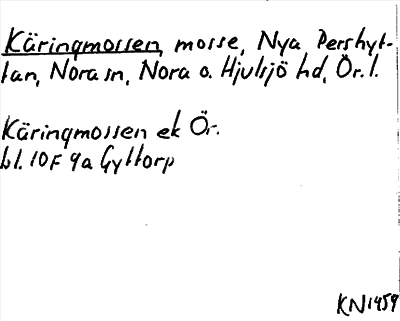 Käringmossen, mosse, Nya Pershyt-
tan, Nora sn, Nora o. Hjulsjö hd, Ör. l.
Käringmossen ek Ör.
bl. 10F 9a Gyttorp
KN 1959